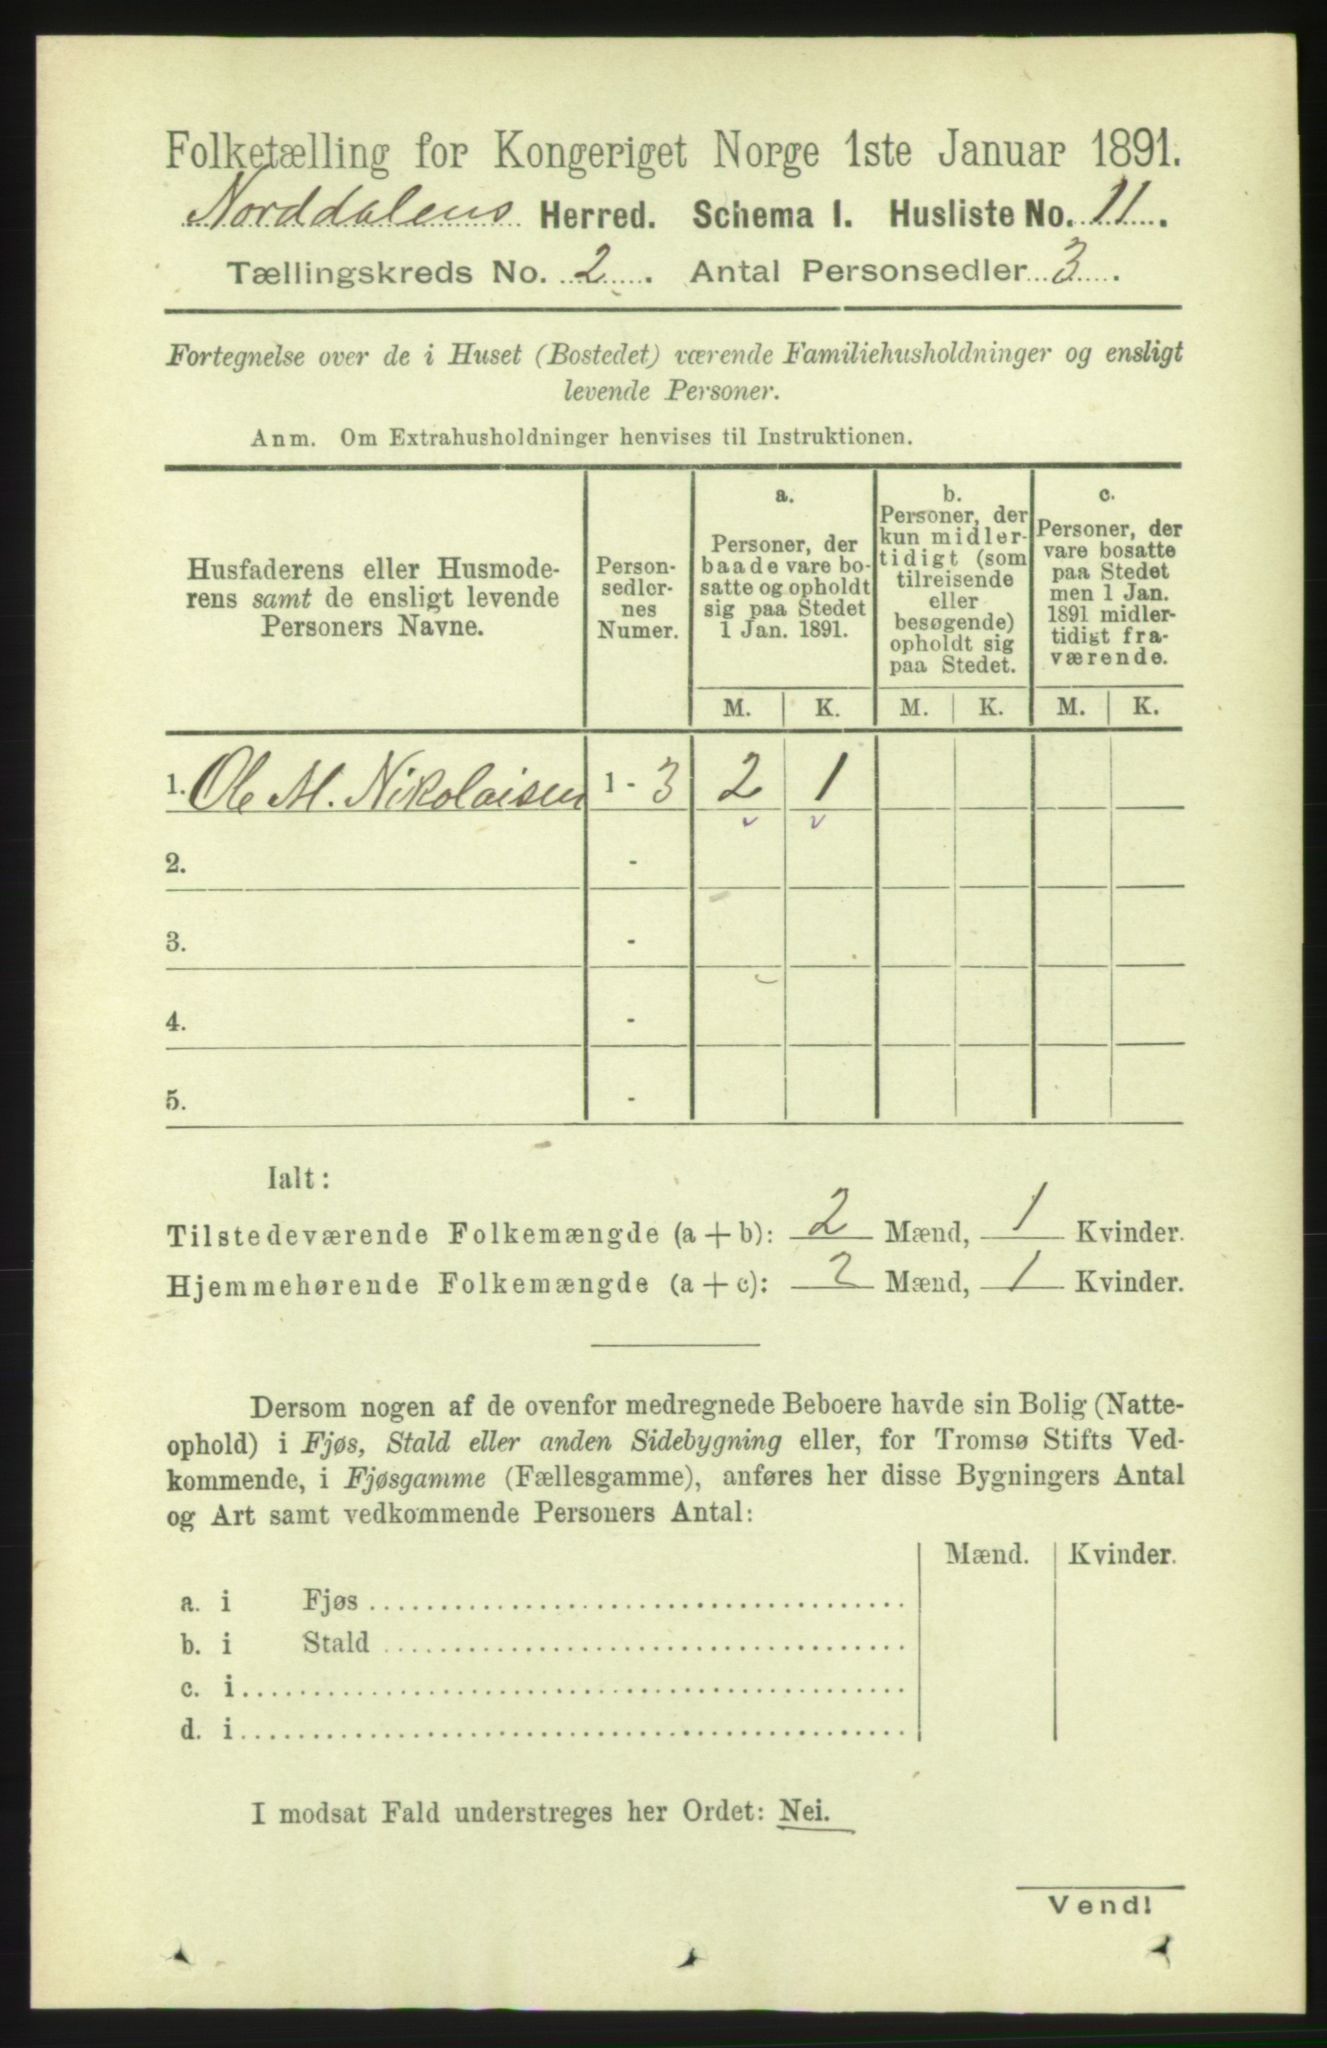 Folketælling for Kongeriget Norge 1ste Januar 1891.
Norddalens Herred. Schema I. Husliste No. 11.
Tællingskreds No. 2. Antal Personsedler 3.
Fortegnelse over de i Huset (Bostedet) værende Familiehusholdninger og ensligt
levende Personer.
Anm. Om Extrahusholdninger henvises til Instruktionen.
Husfaderens eller Husmode-
rens samt de ensligt levende
Personers Navne.
Person-
sedler-
nes
Numer.
a.
Personer, der
baade vare bo-
satte og opholdt
sig paa Stedet
1 Jan. 1891.
b.
Personer, der
kun midler-
tidigt (som
tilreisende
eller
besøgende)
opholdt sig
paa Stedet.
c.
Personer, der
vare bosatte
paa Stedet
men 1 Jan.
1891 midler-
tidigt fra-
værende.
M. K. M. K. M. K.
1. Ole M. Nikolaisen 1 - 3 2 1
2. -
3. -
4. -
5. -
Ialt:
Tilstedeværende Folkemængde (a + b): 2 Mænd, 1 Kvinder.
Hjemmehørende Folkemængde (a + c): 2 Mænd, 1 Kvinder.
Dersom nogen af de ovenfor medregnede Beboere havde sin Bolig (Natte-
ophold) i Fjøs, Stald eller anden Sidebygning eller, for Tromsø Stifts Ved-
kommende, i Fjøsgamme (Fællesgamme), anføres her disse Bygningers Antal
og Art samt vedkommende Personers Antal:
Mænd. Kvinder.
a. i Fjøs
b. i Stald
c. i
d. i
I modsat Fald understreges her Ordet: Nei.
Vend!